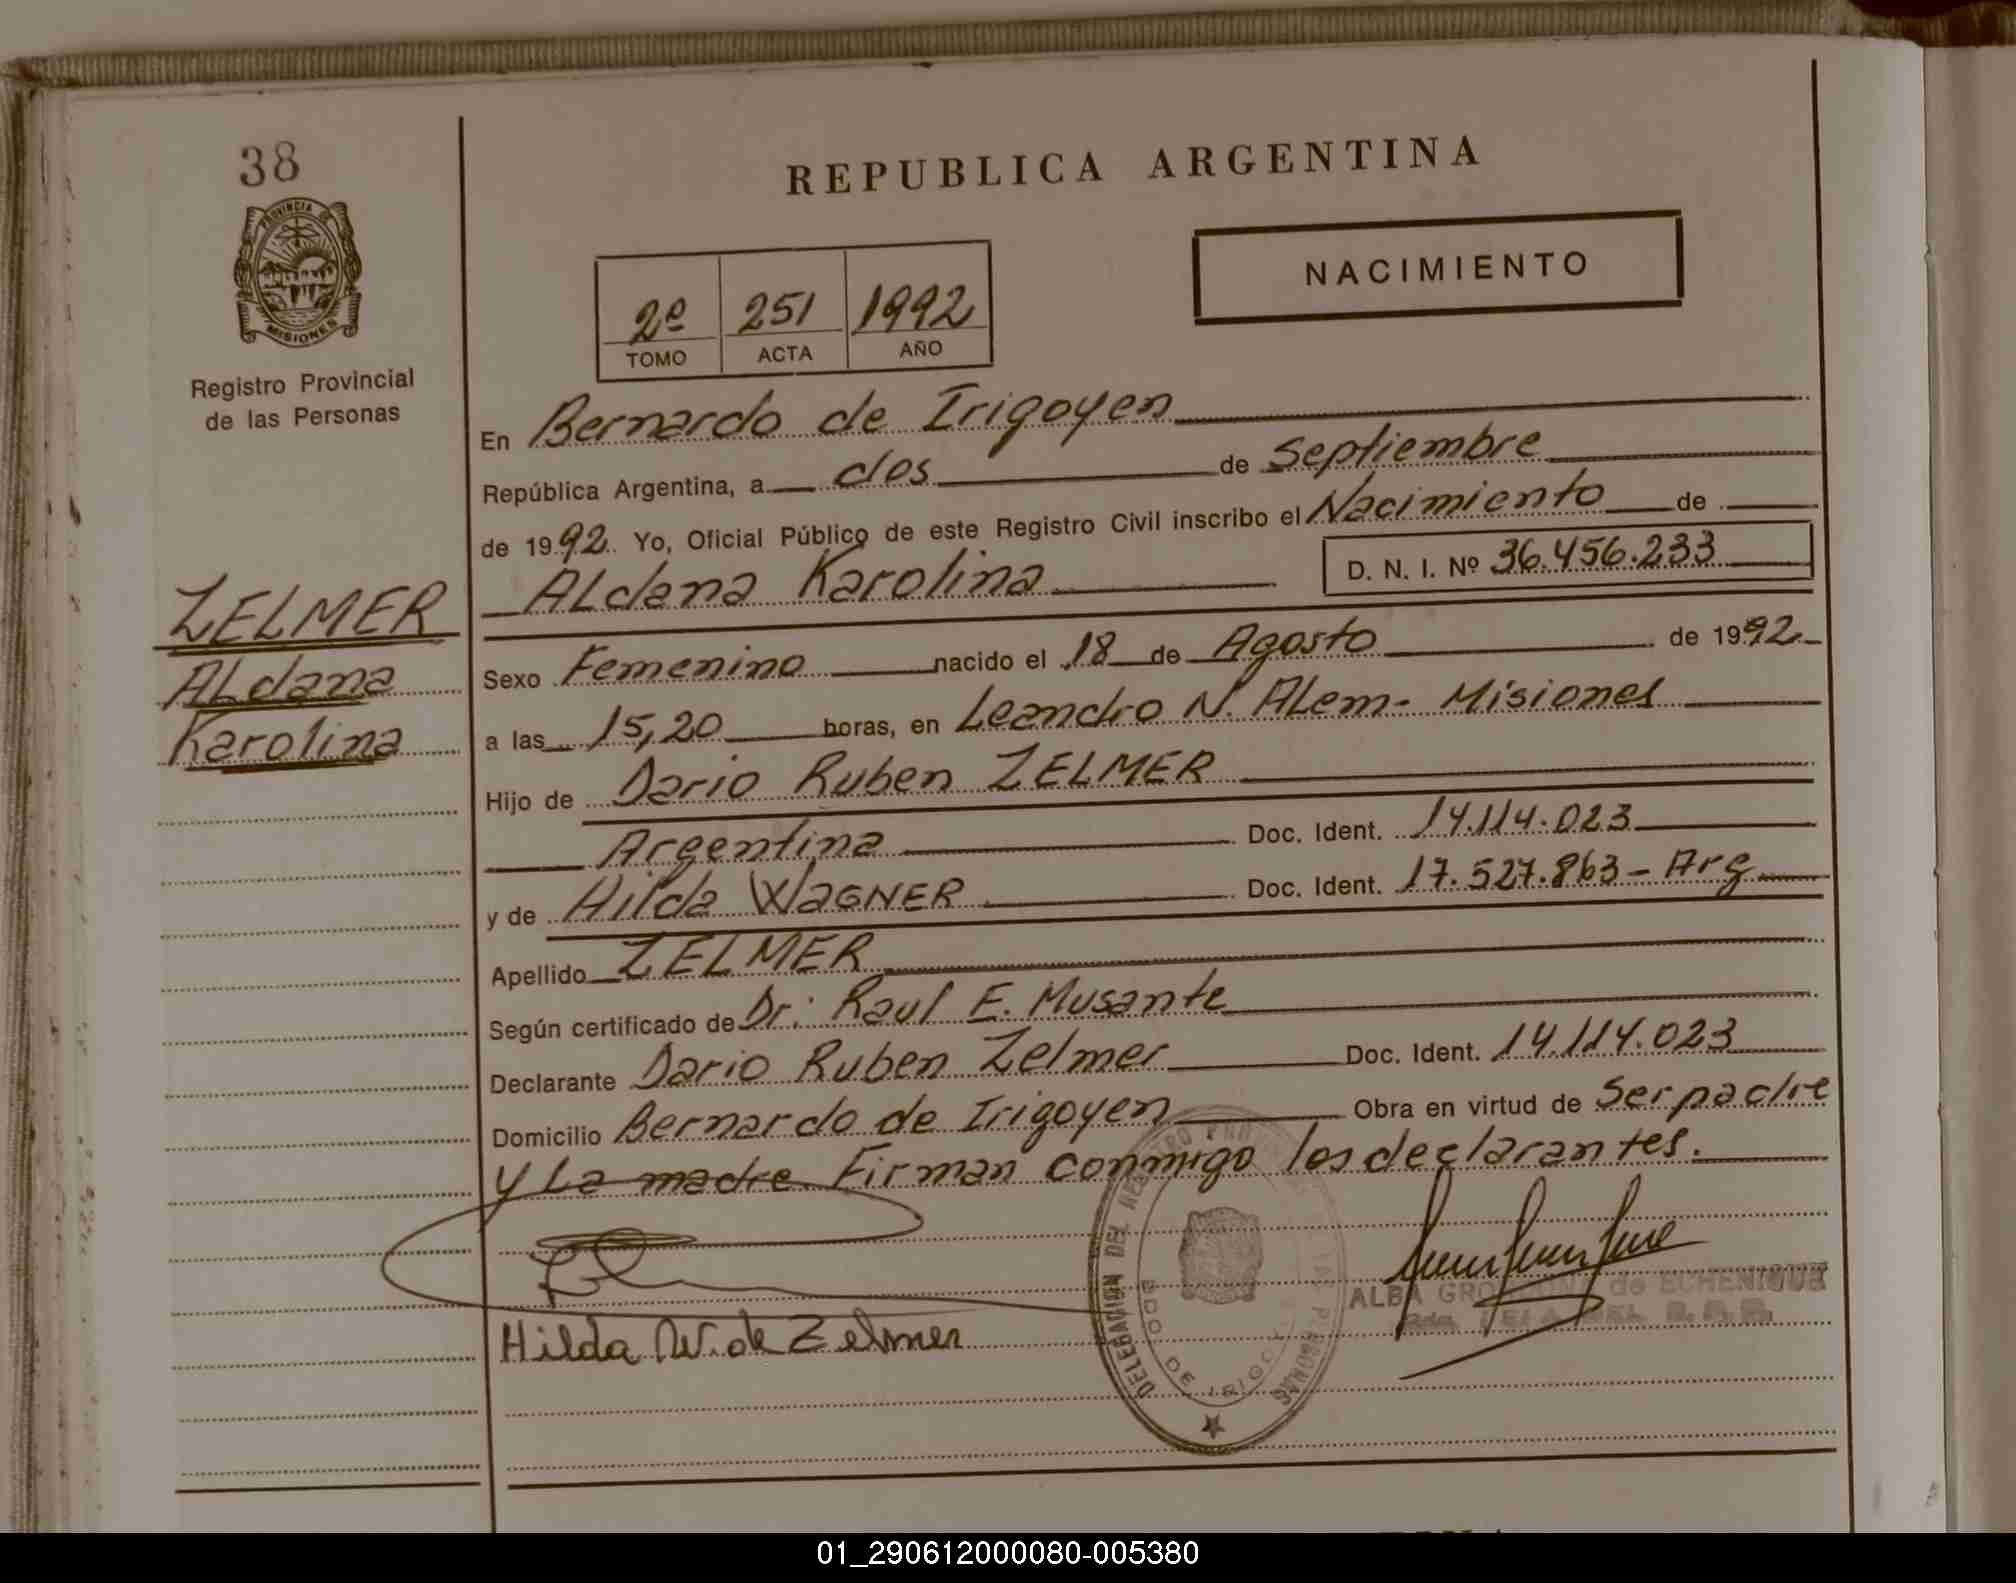 38
PROVINCIA DE
MISIONES
Registro Provincial
de las Personas
ZELMER
ALdana
Karolina
REPUBLICA ARGENTINA
NACIMIENTO
2º 251 1992
TOMO ACTA AÑO
En Bernardo de Irigoyen
República Argentina, a dos de Septiembre
de 1992. Yo, Oficial Público de este Registro Civil inscribo el Nacimiento de
ALdana Karolina D. N. I. Nº 36.456.233
Sexo Femenino nacido el 18 de Agosto de 1992
a las 15,20 horas, en Leandro N. ALem - Misiones
Hijo de Dario Ruben ZELMER
Argentina Doc. Ident. 14.114.023
y de Hilda WaGNER Doc. Ident. 17.527.863 - Arg
Apellido ZELMER
Según certificado de Dr: Raul E. Musante
Declarante Dario Ruben Zelmer Doc. Ident. 14.114.023
Domicilio Bernardo de Irigoyen Obra en virtud de Ser padre
y La madre. Firman conmigo los declarantes.
Hilda W. de Zelmer
DELEGACION DEL REGISTRO PERSONAS
BDO DE IRIGOY
ALBA de ECHENIQUE
01_290612000080-005380